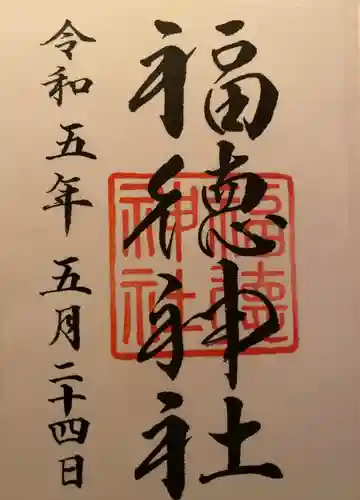 福徳神社
令和五年五月二十四日
福徳
神社